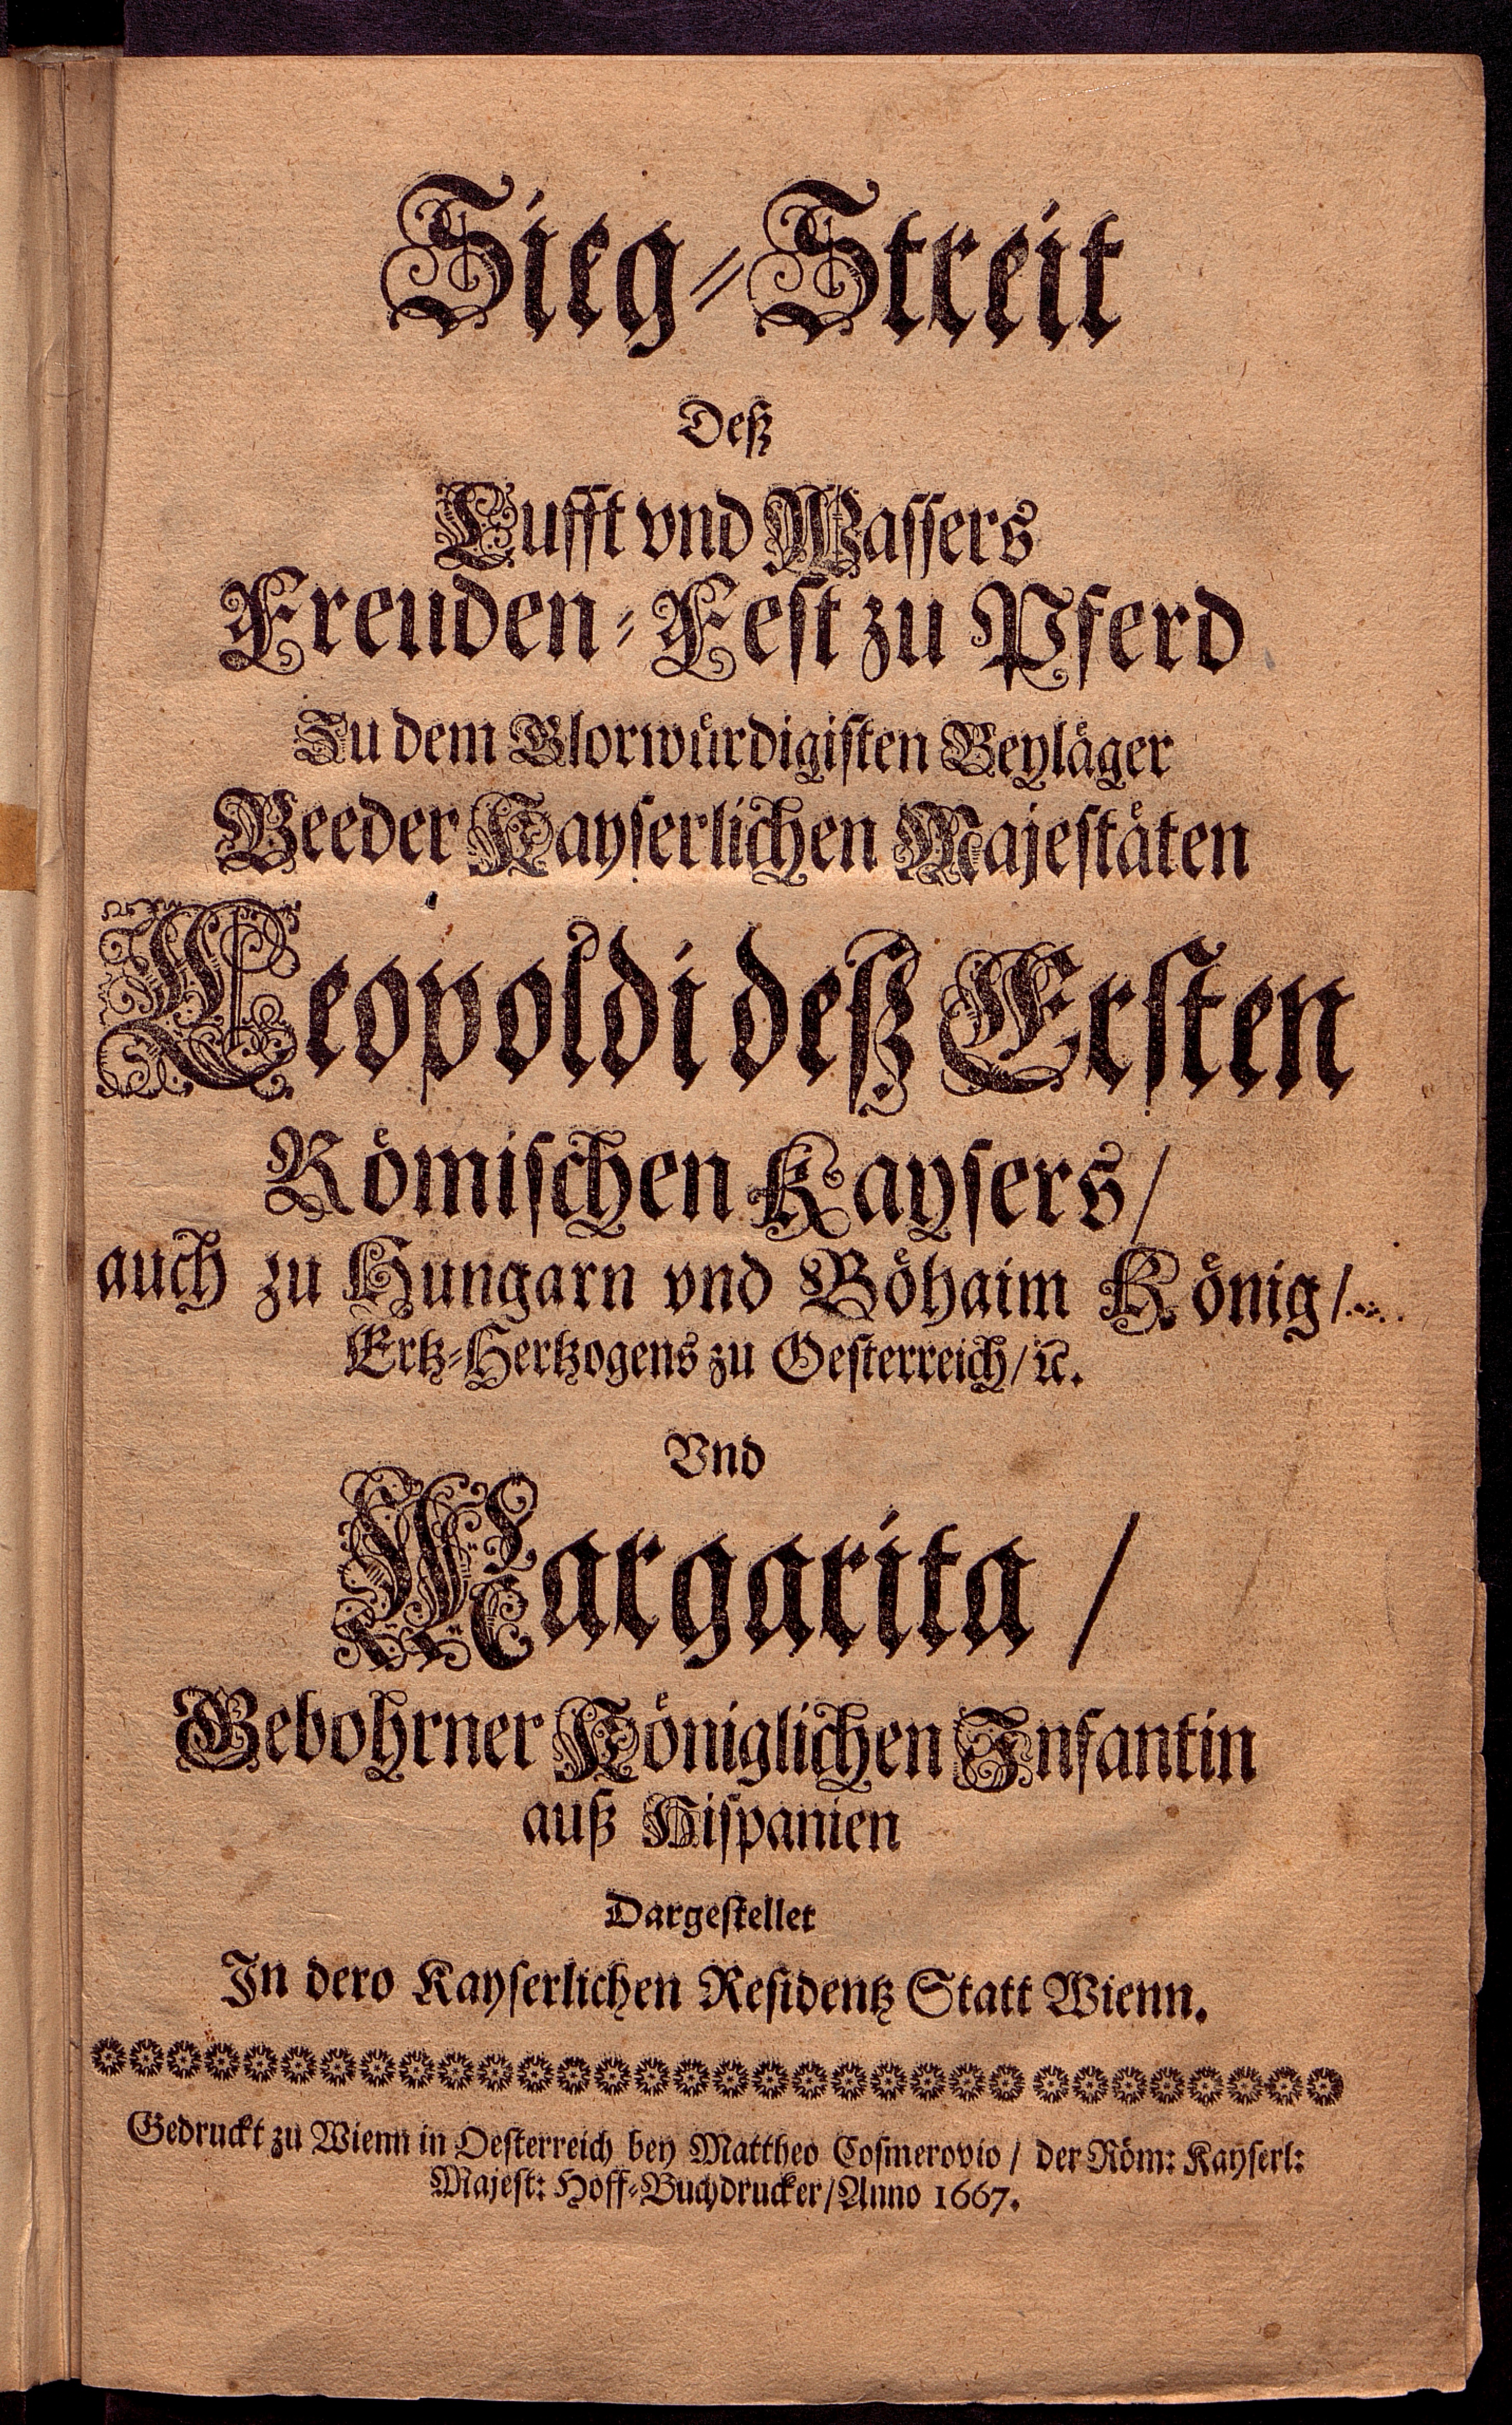 Sieg-Streit
Deß
Lufft vnd Wassers
Freuden-Fest zu Pferd
Zu dem Glorwürdigisten Beyläger
Beeder Kayserlichen Majestäten
Leopoldi deß Ersten
Römischen Kaysers/
auch zu Hungarn vnd Böhaim König/
Ertz-Hertzogens zu Oesterreich/ ꝛc.
Vnd
Margarita /
Gebohrner Königlichen Infantin
auß Hispanien
Dargestellet
In dero Kayserlichen Residentz Statt Wienn.
Gedruckt zu Wienn in Oesterreich bey Mattheo Cosmerovio / der Röm: Kayserl:
Majest: Hoff-Buchdrucker/Anno 1667.